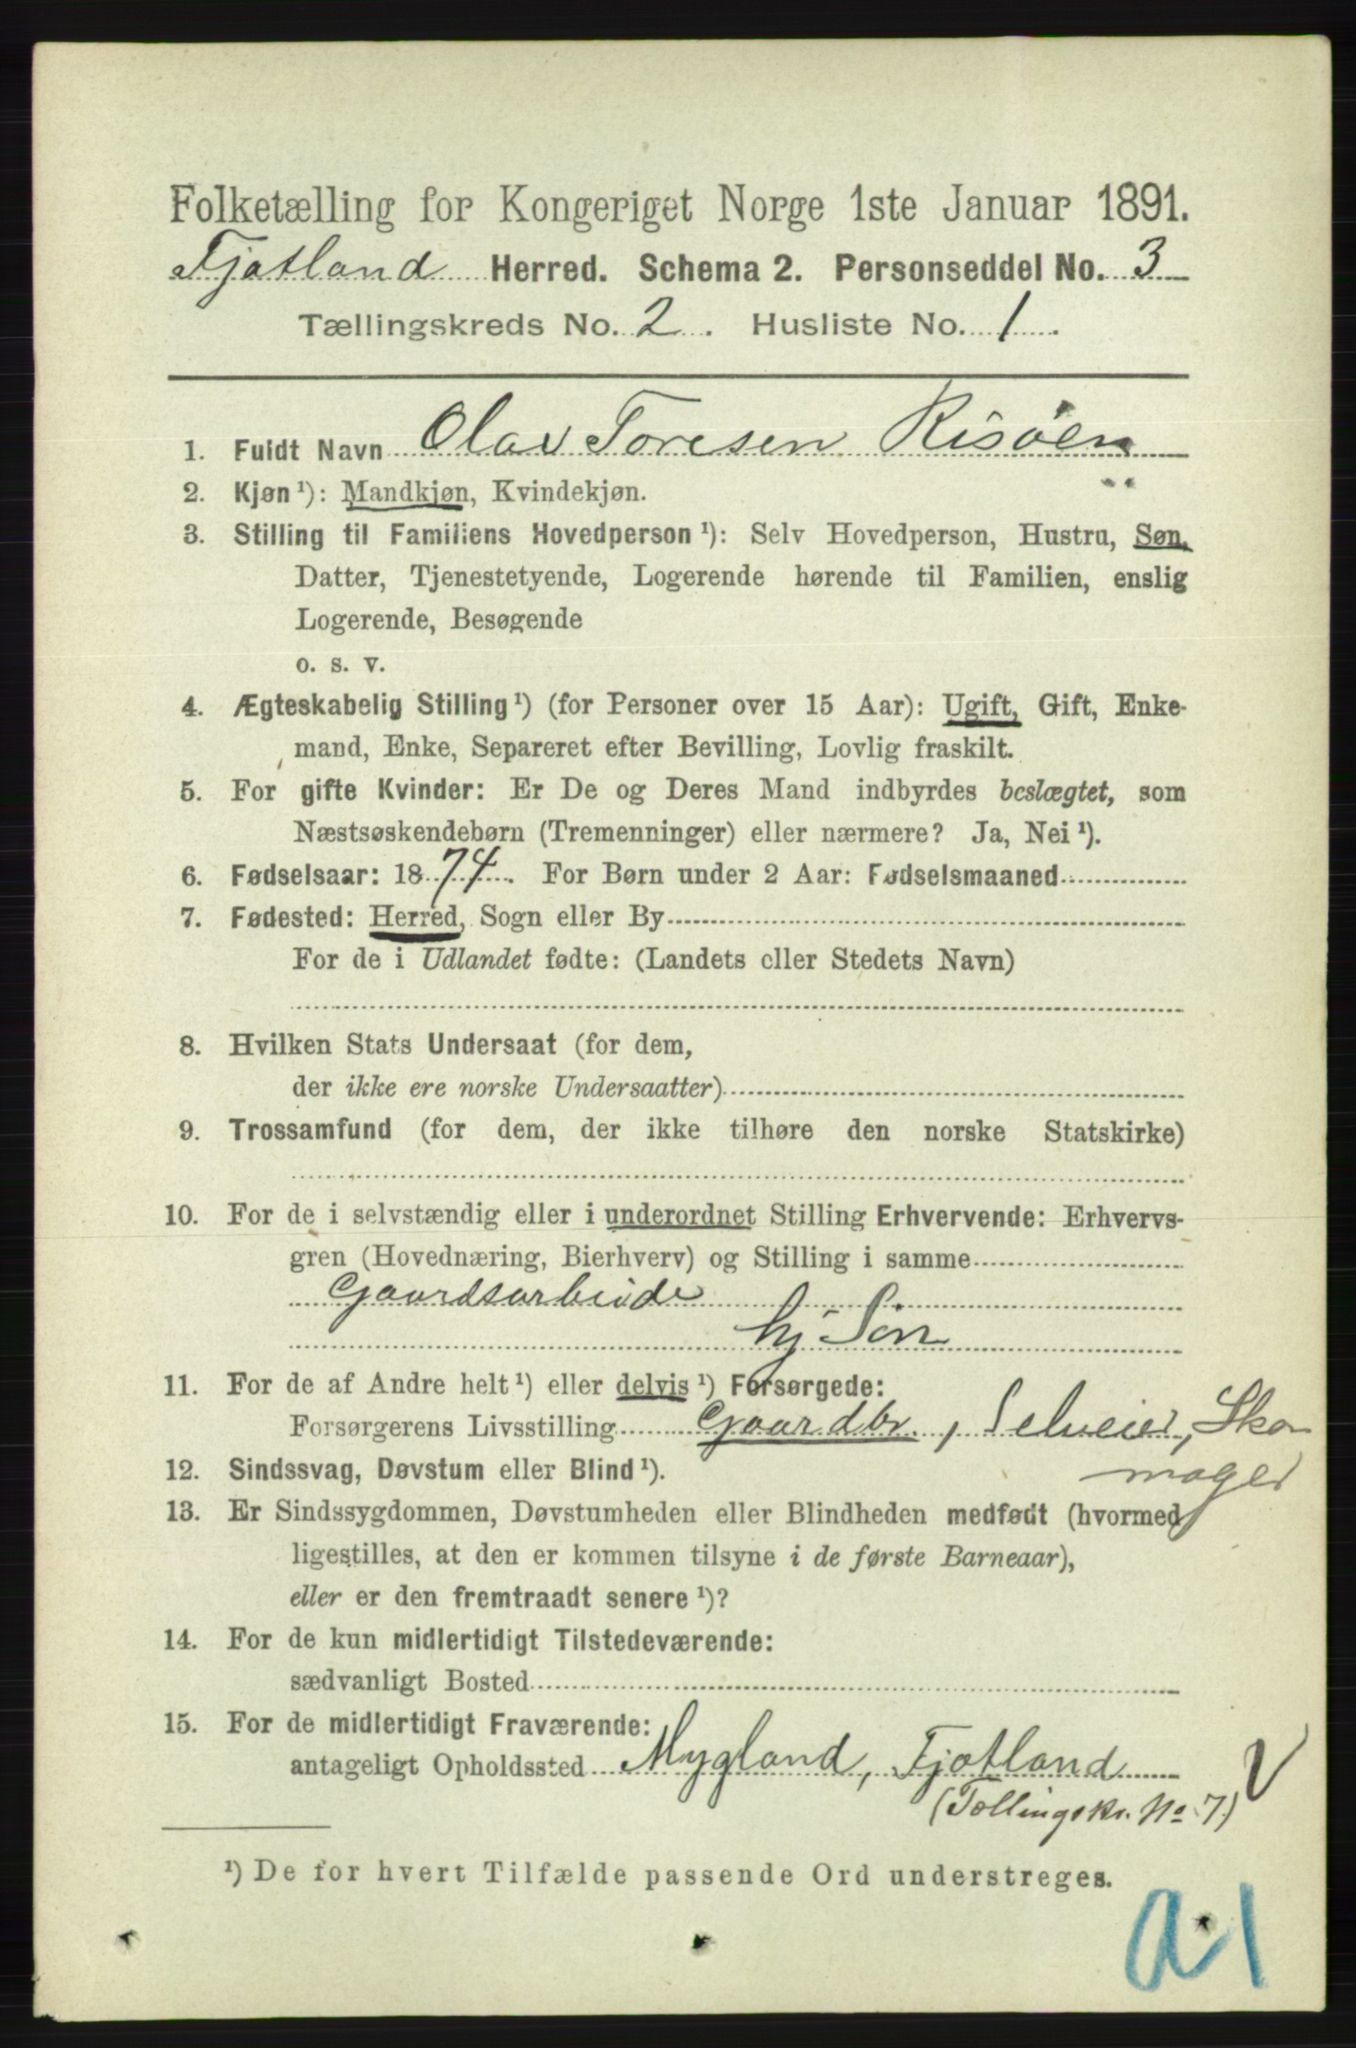 Folketælling for Kongeriget Norge 1ste Januar 1891.
Fjotland Herred. Schema 2. Personseddel No. 3
Tællingskreds No. 2. Husliste No. 1.
1. Fuldt Navn Olav Toresen Risöen
2. Kjøn ¹): Mandkjøn, Kvindekjøn.
3. Stilling til Familiens Hovedperson ¹): Selv Hovedperson, Hustru, Søn,
Datter, Tjenestetyende, Logerende hørende til Familien, enslig
Logerende, Besøgende
o. s. v.
4. Ægteskabelig Stilling ¹) (for Personer over 15 Aar): Ugift, Gift, Enke-
mand, Enke, Separeret efter Bevilling, Lovlig fraskilt.
5. For gifte Kvinder: Er De og Deres Mand indbyrdes beslægtet, som
Næstsøskendebørn (Tremenninger) eller nærmere? Ja, Nei ¹).
6. Fødselsaar: 1874. For Børn under 2 Aar: Fødselsmaaned
7. Fødested: Herred, Sogn eller By
For de i Udlandet fødte: (Landets eller Stedets Navn)
8. Hvilken Stats Undersaat (for dem,
der ikke ere norske Undersaatter)
9. Trossamfund (for dem, der ikke tilhøre den norske Statskirke)
10. For de i selvstændig eller i underordnet Stilling Erhvervende: Erhvervs-
gren (Hovednæring, Bierhverv) og Stilling i samme
Gaardsarbeide
hj. Søn
11. For de af Andre helt ¹) eller delvis ¹) Forsørgede:
Forsørgerens Livsstilling Gaardbr., Selveier, Sko
mager
12. Sindssvag, Døvstum eller Blind ¹).
13. Er Sindssygdommen, Døvstumheden eller Blindheden medfødt (hvormed
ligestilles, at den er kommen tilsyne i de første Barneaar),
eller er den fremtraadt senere ¹)?
14. For de kun midlertidigt Tilstedeværende:
sædvanligt Bosted
15. For de midlertidigt Fraværende:
antageligt Opholdssted Mygland, Fjotland V
(Tællingskr. No 7.)
¹) De for hvert Tilfælde passende Ord understreges.
a 1